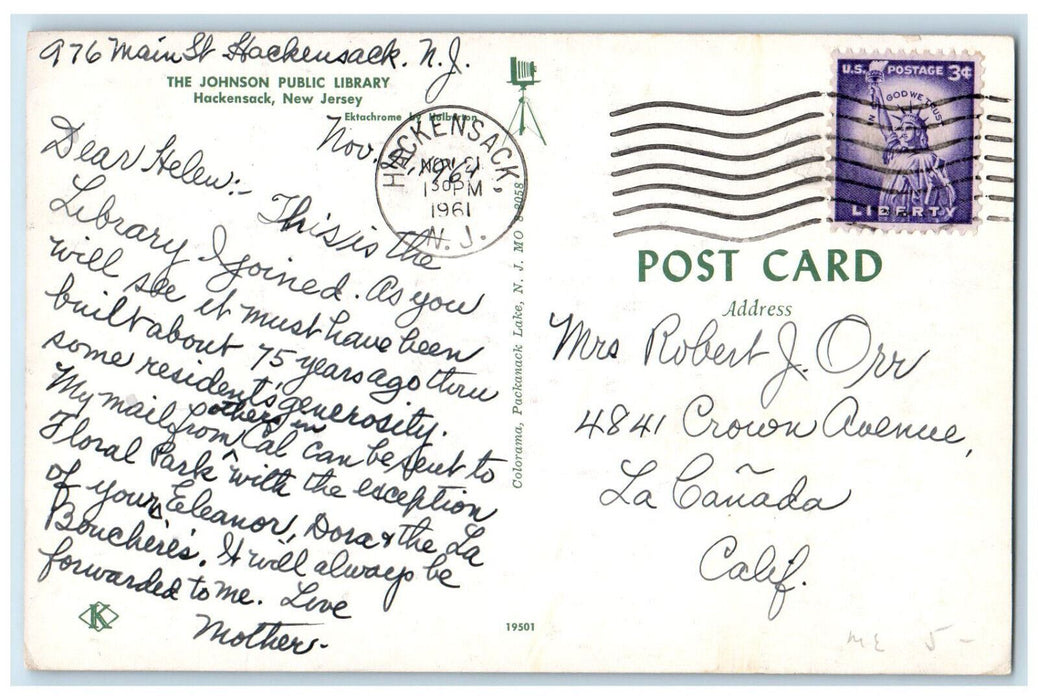 976 Main St Hackensack. N.J.
THE JOHNSON PUBLIC LIBRARY
Hackensack, New Jersey
Ektachrome by
Nov. 1961
Dear Helen:- This is the
Library I joined. As you
will see it must have been
built about 75 years ago thru
some residents' generosity.
My mail from others in Cal can be sent to
Floral Park with the exception
of yours, Eleanor, Dora & the La
Boucherie's. It will always be
forwarded to me. Love
Mother-
K
HACKENSACK,
NOV 21
130 PM
1961
N. J.
Colorama, Packanack Lake, N. J. MO 8058
19501
U.S. POSTAGE 3¢
IN GOD WE TRUST
LIBERTY
POST CARD
Address
Mrs Robert J. Orr
4841 Crown Avenue,
La Cañada
Calif.
ME 5-